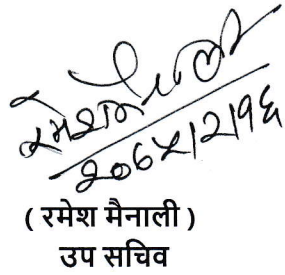 रमेश मैनाली
२०७५।२।१६
( रमेश मैनाली )
उप सचिव